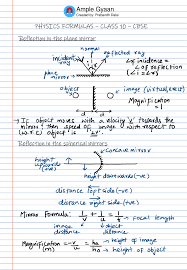 Ample Gyaan
Created by: Prabanch Dalal
PHYSICS FORMULAS - CLASS 10 - CBSE
Reflection in the plane mirror
normal
incident ray
reflected ray
∠ of incidence =
∠ of reflection
(∠i = ∠r)
plane mirror
object
image (virtual, erect)
Magnification
= 1
→ If object moves with a velocity 'v' towards the
mirror, then speed of image with respect to
(w.r.to) object is 2v.
Reflection in the spherical mirrors
Concave mirror
height upwards (+ve)
height downwards (-ve)
distance left side (-ve)
distance right side (+ve)
Mirror Formula: 1/v + 1/u = 1/f → focal length
image distance
object distance
Magnification (m) = -v/u = hi/ho → height of image
→ height of object